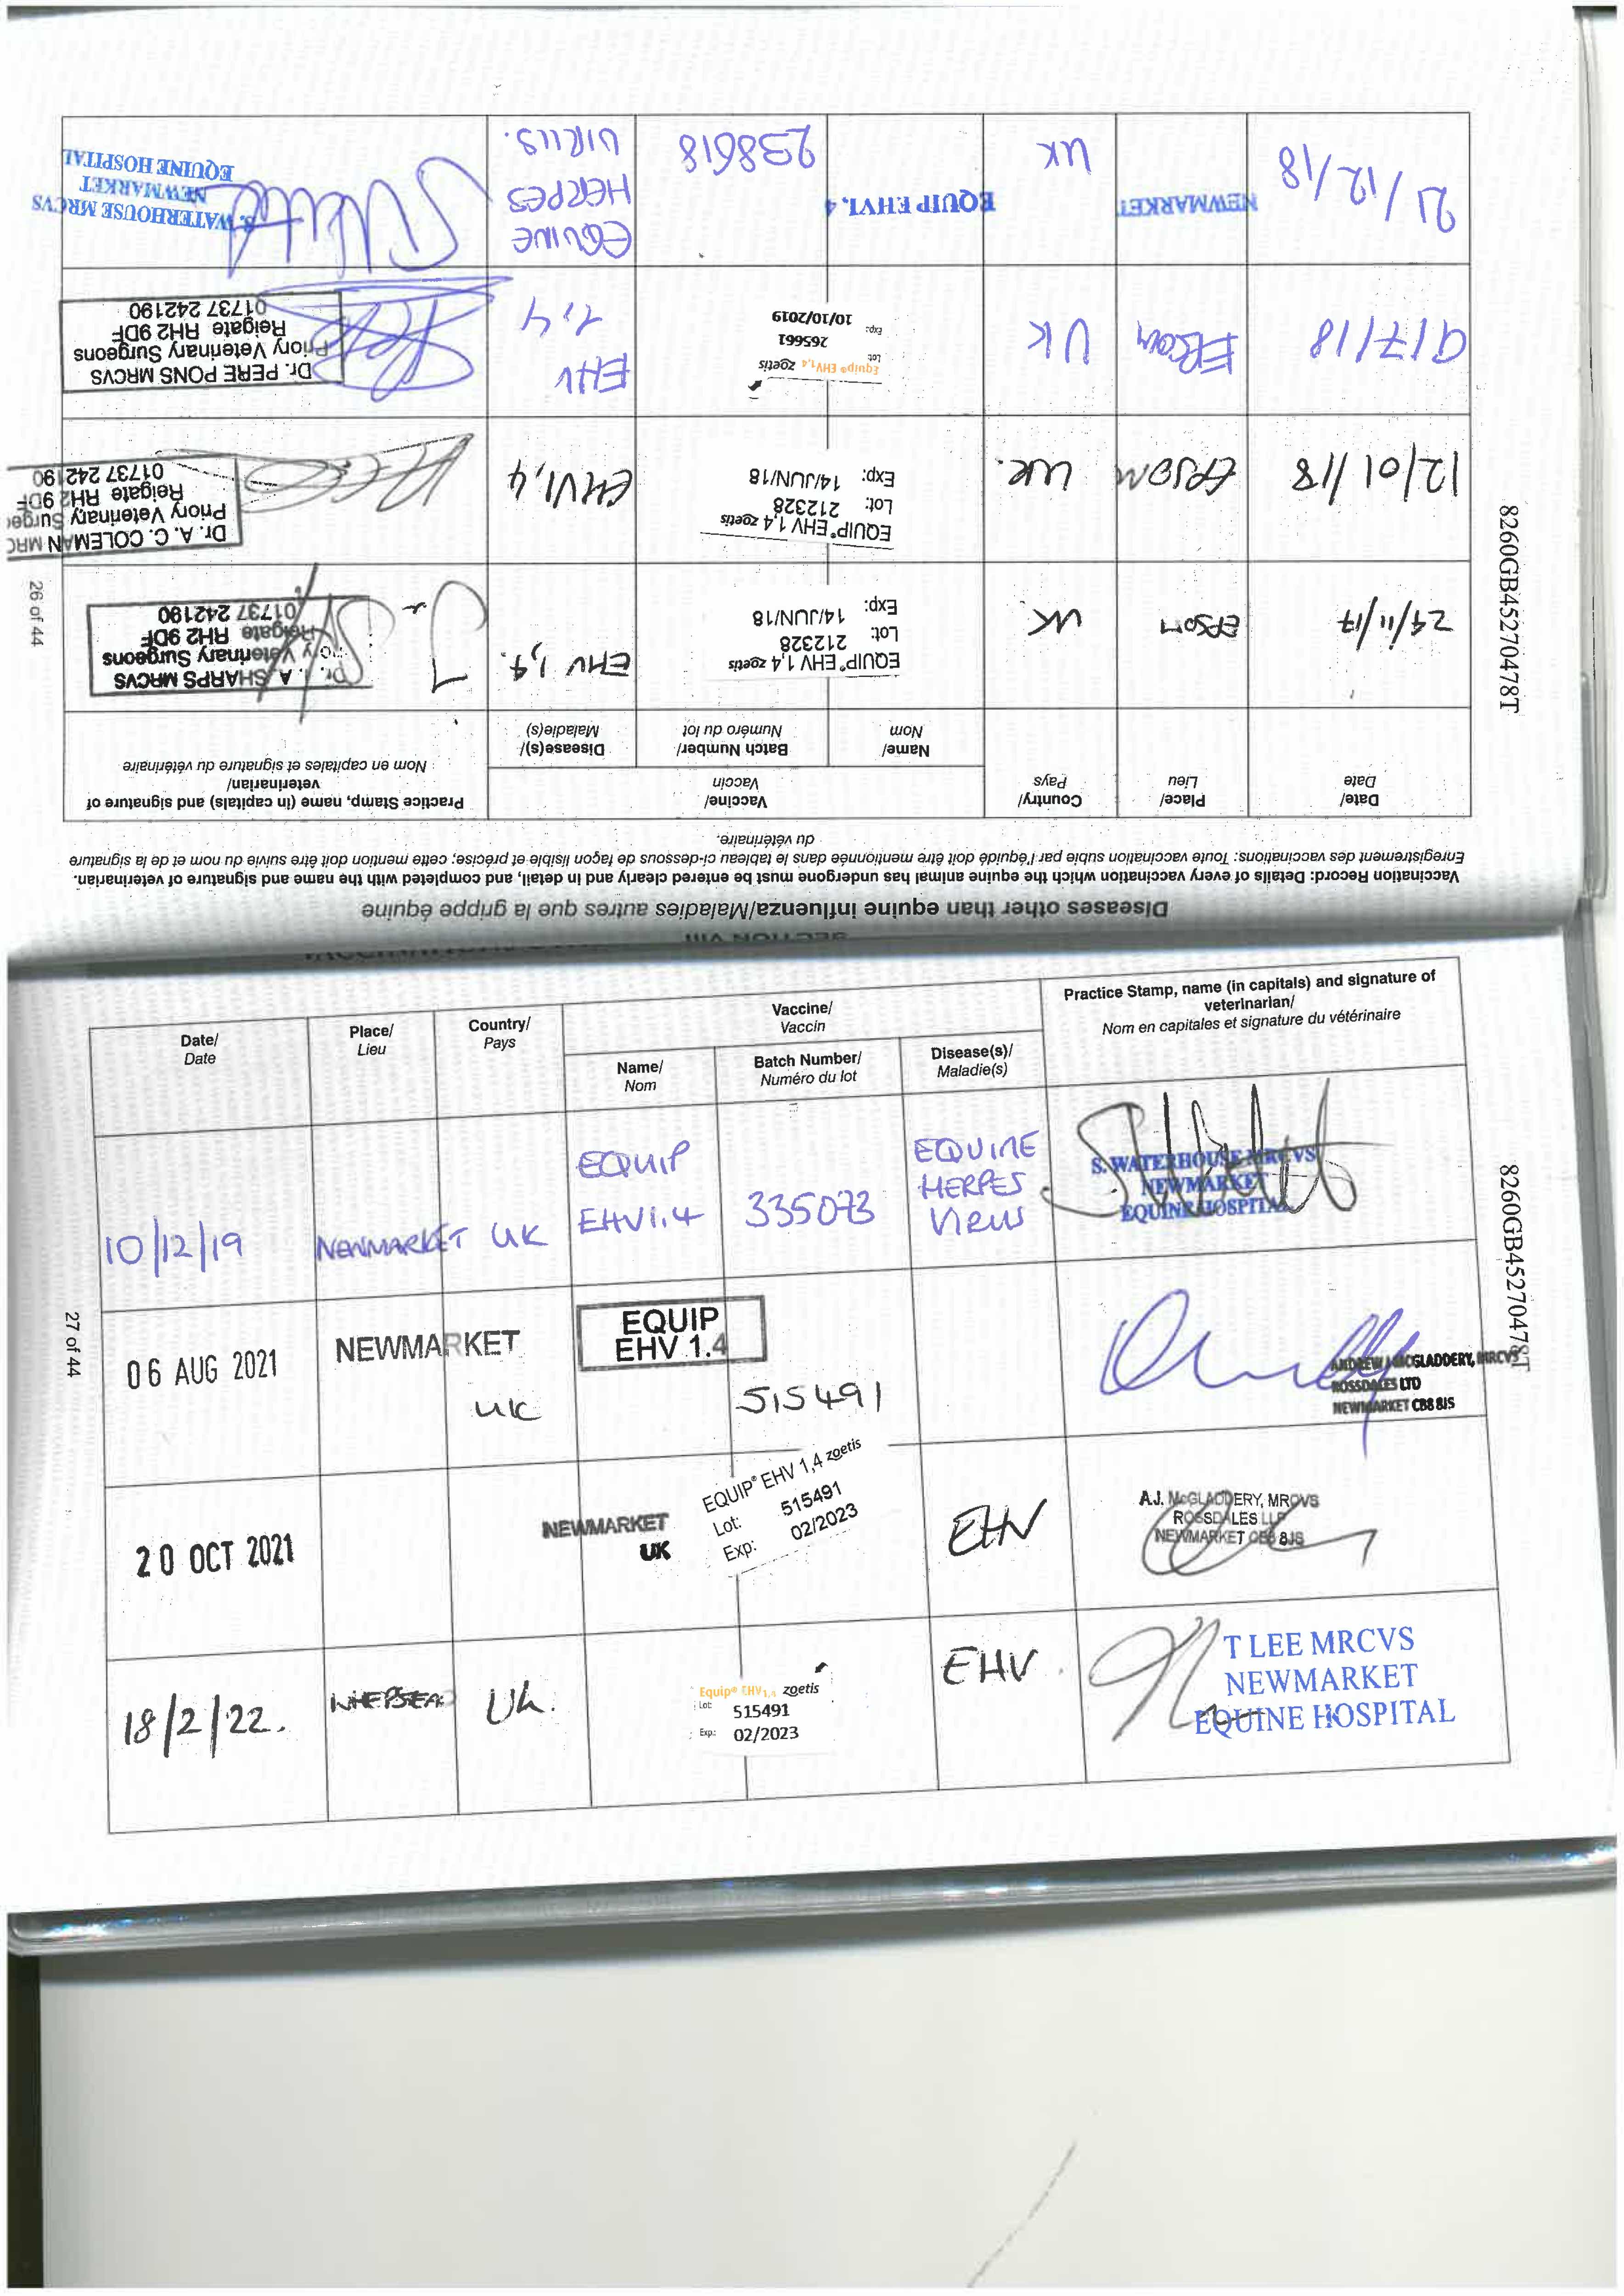 SECTION VIII
Diseases other than equine influenza/Maladies autres que la grippe équine
Vaccination Record: Details of every vaccination which the equine animal has undergone must be entered clearly and in detail, and completed with the name and signature of veterinarian.
Enregistrement des vaccinations: Toute vaccination subie par l'équidé doit être mentionnée dans le tableau ci-dessous de façon lisible et précise; cette mention doit être suivie du nom et de la signature
du vétérinaire.
Date/
Date
Place/
Lieu
Country/
Pays
Vaccine/
Vaccin
Name/
Nom
Batch Number/
Numéro du lot
Disease(s)/
Maladie(s)
Practice Stamp, name (in capitals) and signature of
veterinarian/
Nom en capitales et signature du vétérinaire
24/11/17
EPSOM
UK
EQUIP® EHV 1,4 zoetis
Lot: 212328
Exp: 14/JUN/18
EHV 1,4.
A SHARPS MRCVS
Veterinary Surgeons
Reigate RH2 9DF
01737 242190
12/01/18
EPSOM
UK.
EQUIP® EHV 1,4 zoetis
Lot: 212328
Exp: 14/JUN/18
EHV1,4
Dr. A. C. COLEMAN MRC
Priory Veterinary Surgeo
Reigate RH2 9DF
01737 242190
9/7/18
EPSOM
UK
Equip® EHV1,4 zoetis
Lot 265661
Exp: 10/10/2019
EHV
1,4
Dr. PERE PONS MRCVS
Priory Veterinary Surgeons
Reigate RH2 9DF
01737 242190
21/12/18
NEWMARKET
UK
EQUIP EHV1.4
238618
EQUINE
HERPES
VIRUS.
S. WATERHOUSE MRCVS
NEWMARKET
EQUINE HOSPITAL
8260GB45270478T
26 of 44
Date/
Date
Place/
Lieu
Country/
Pays
Vaccine/
Vaccin
Name/
Nom
Batch Number/
Numéro du lot
Disease(s)/
Maladie(s)
Practice Stamp, name (in capitals) and signature of
veterinarian/
Nom en capitales et signature du vétérinaire
10/12/19
NEWMARKET
UK
EQUIP
EHV1.4
335073
EQUINE
HERPES
VIRUS
S. WATERHOUSE MRCVS
NEWMARKET
EQUINE HOSPITAL
06 AUG 2021
NEWMARKET
UK
EQUIP
EHV 1.4
515491
ANDREW J MCGLADDERY, MRCVS
ROSSDALES LTD
NEWMARKET CB8 8JS
20 OCT 2021
NEWMARKET
UK
EQUIP® EHV 1,4 zoetis
Lot: 515491
Exp: 02/2023
EHV
A.J. McGLADDERY, MRCVS
ROSSDALES LLP
NEWMARKET CB8 8JS
18/2/22.
UK.
Equip® EHV1,4 zoetis
Lot: 515491
Exp: 02/2023
EHV.
T LEE MRCVS
NEWMARKET
EQUINE HOSPITAL
8260GB45270478T
27 of 44